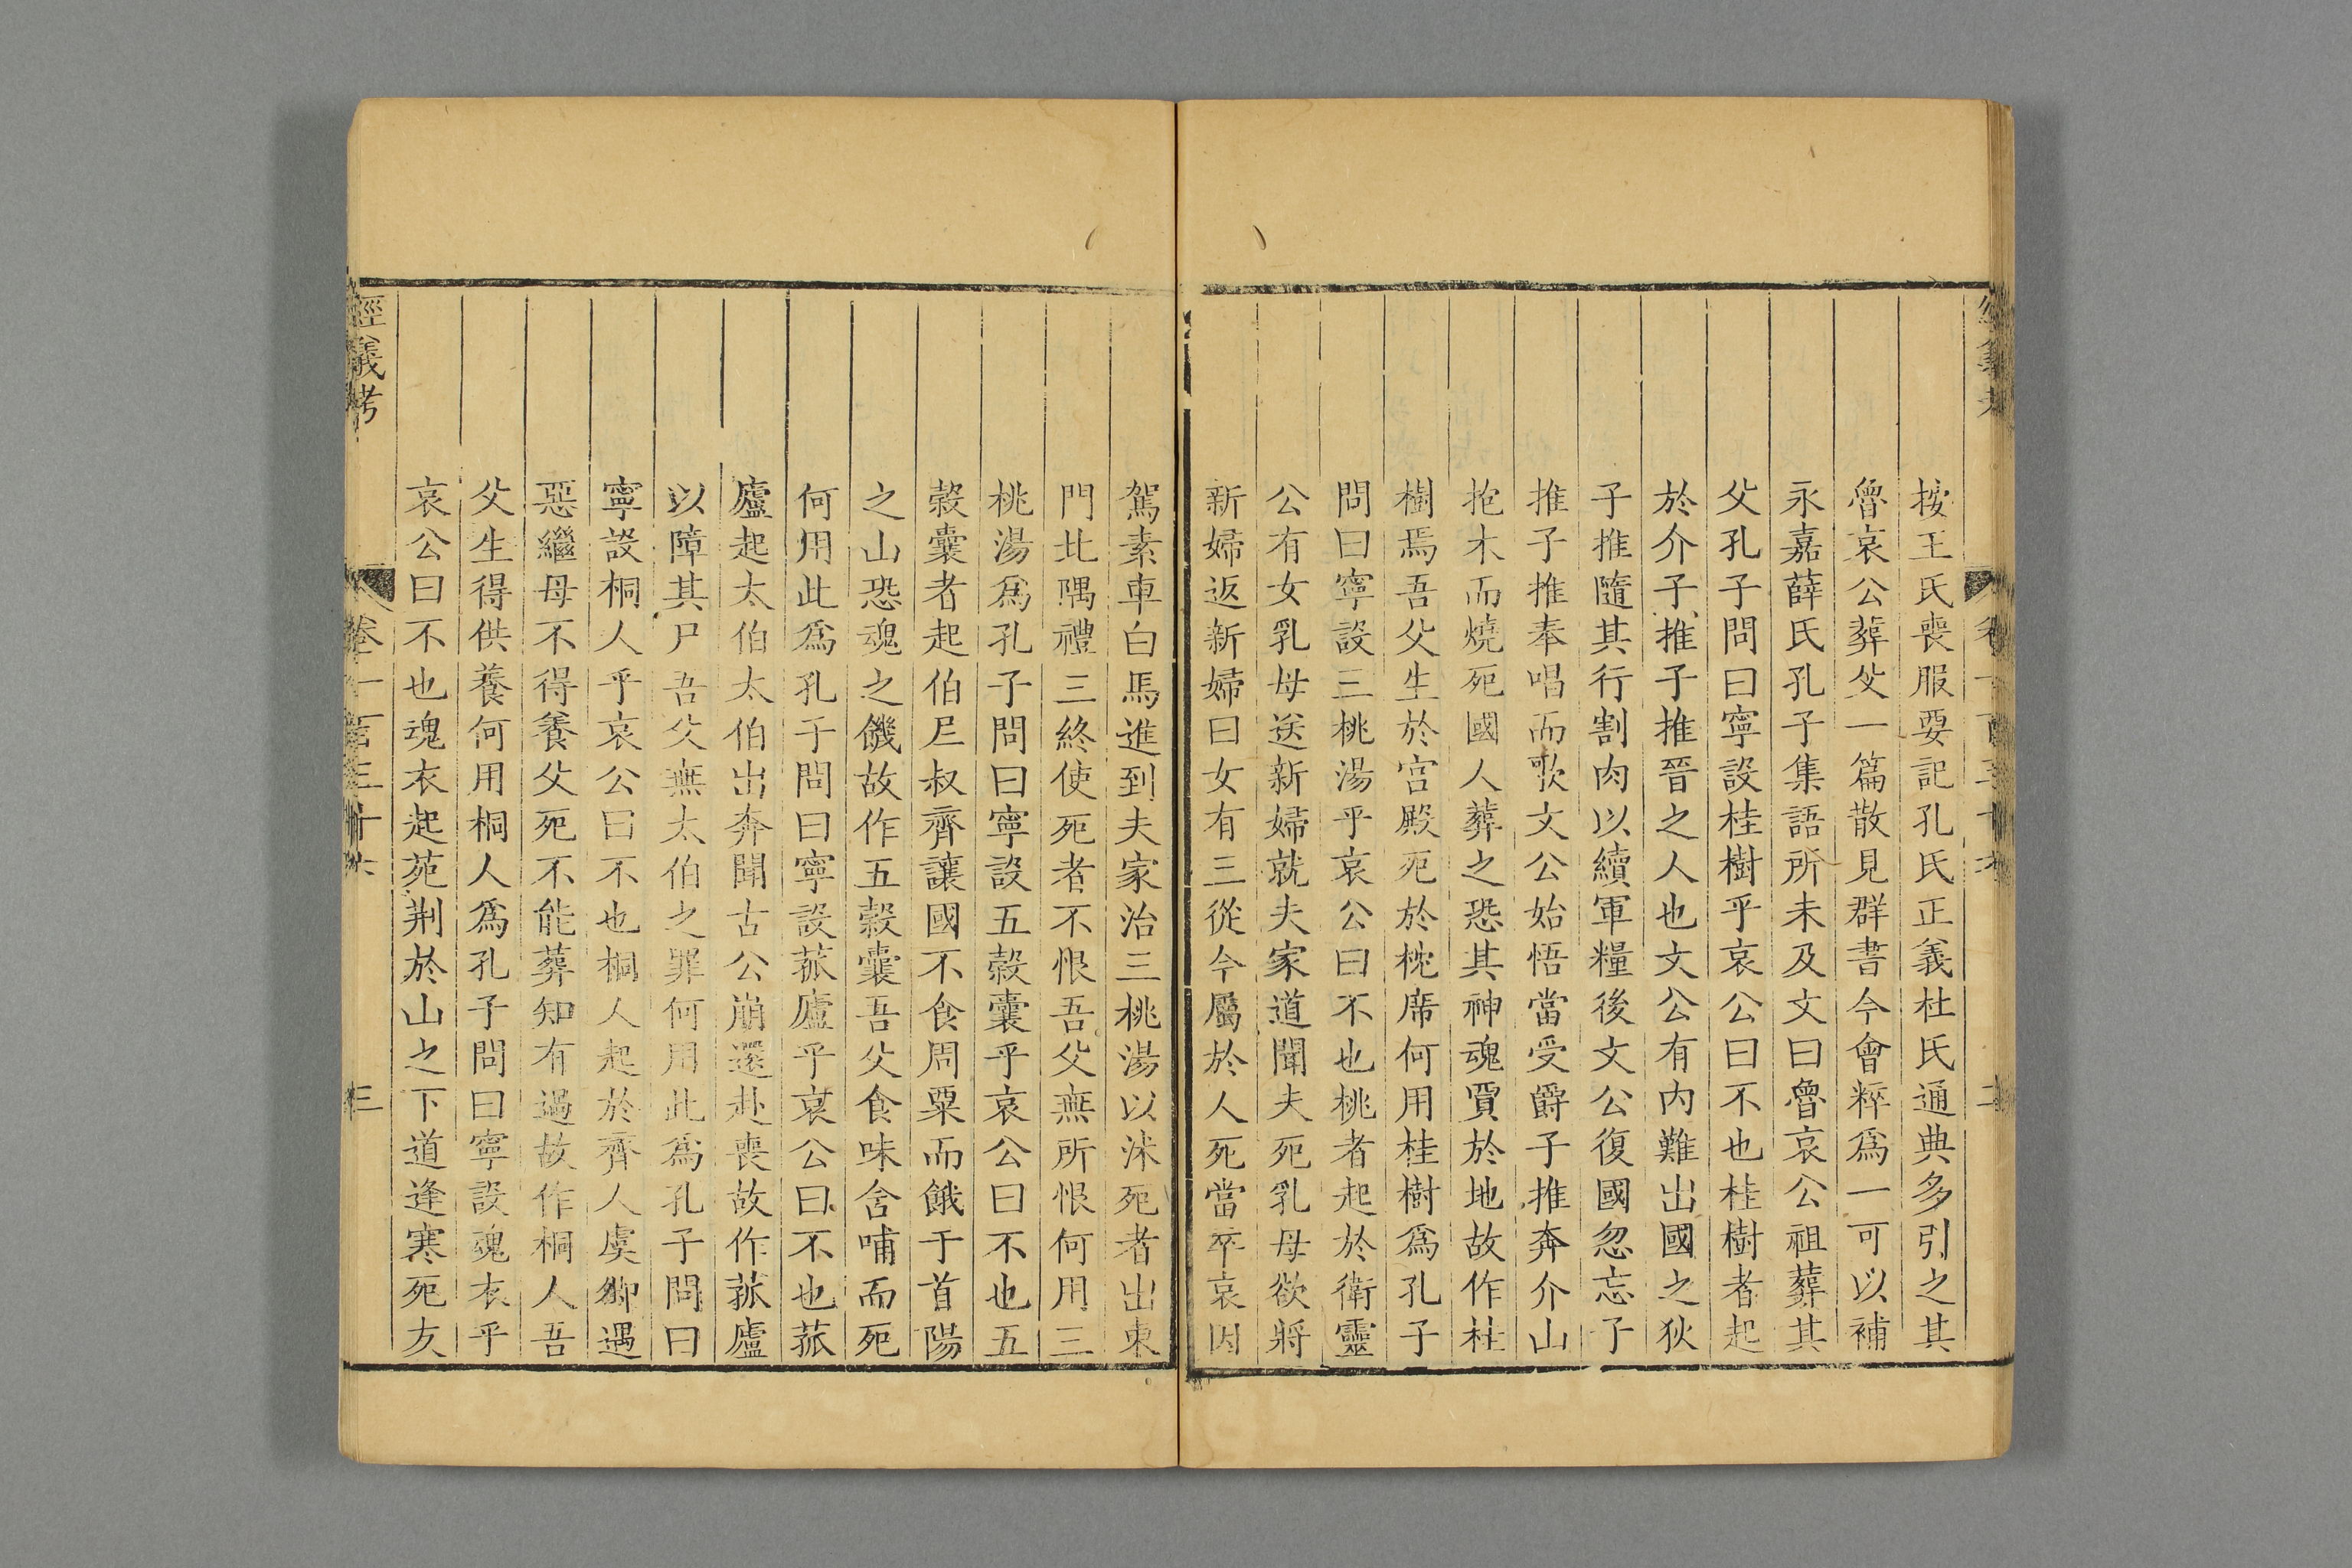 按王氏喪服要記孔氏正義杜氏通典多引之其
魯哀公葬父一篇散見群書今會粹爲一可以補
永嘉薛氏孔子集語所未及文曰魯哀公祖葬其
父孔子問曰寧設桂樹乎哀公曰不也桂樹者起
於介子推子推晉之人也文公有內難出國之狄
子推隨其行割肉以續軍糧後文公復國忽忘了
推子推奉唱而歌文公始悟當受爵子推奔介山
抱木而燒死國人葬之恐其神魂賈於地故作桂
樹焉吾父生於宮殿死於枕席何用桂樹爲孔子
問曰寧設三桃湯乎哀公曰不也桃者起於衛靈
公有女乳母送新婦就夫家道聞夫死乳母欲將
新婦返新婦曰女有三從今屬於人死當卒哀因
駕素車白馬進到夫家治三桃湯以沐死者出東
門北隅禮三終使死者不恨吾父無所恨何用三
桃湯爲孔子問曰寧設五穀囊乎哀公曰不也五
穀囊者起伯夷叔齊讓國不食周粟而餓于首陽
之山恐魂之饑故作五穀囊吾父食味舍哺而死
何用此爲孔子問曰寧設菰廬乎哀公曰不也菰
廬起太伯太伯出奔聞古公崩還赴喪故作菰廬
以障其尸吾父無太伯之罪何用此爲孔子問曰
寧設桐人乎哀公曰不也桐人起於齊人虞卿遇
惡繼母不得養父死不能葬知有過故作桐人吾
父生得供養何用桐人爲孔子問曰寧設魂衣乎
哀公曰不也魂衣起苑荆於山之下道逢寒死友
經義考
卷一百三十六
三